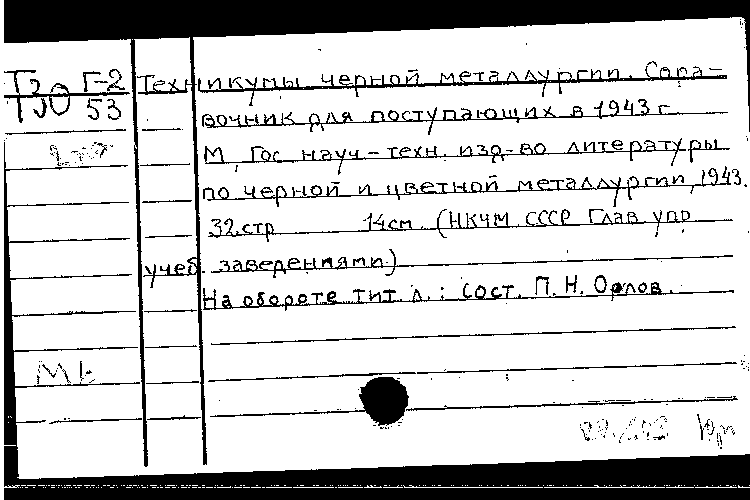 Т30 Г-2 Техникумы черной металлургии. Спра-
53 вочник для поступающих в 1943 г.
М, Гос. науч.-техн. изд-во литературы
по черной и цветной металлургии, 1943.
32 стр 14 см. (НКЧМ СССР Глав. упр.
учеб. заведениями)
На обороте тит. л.: сост. П. Н. Орлов.